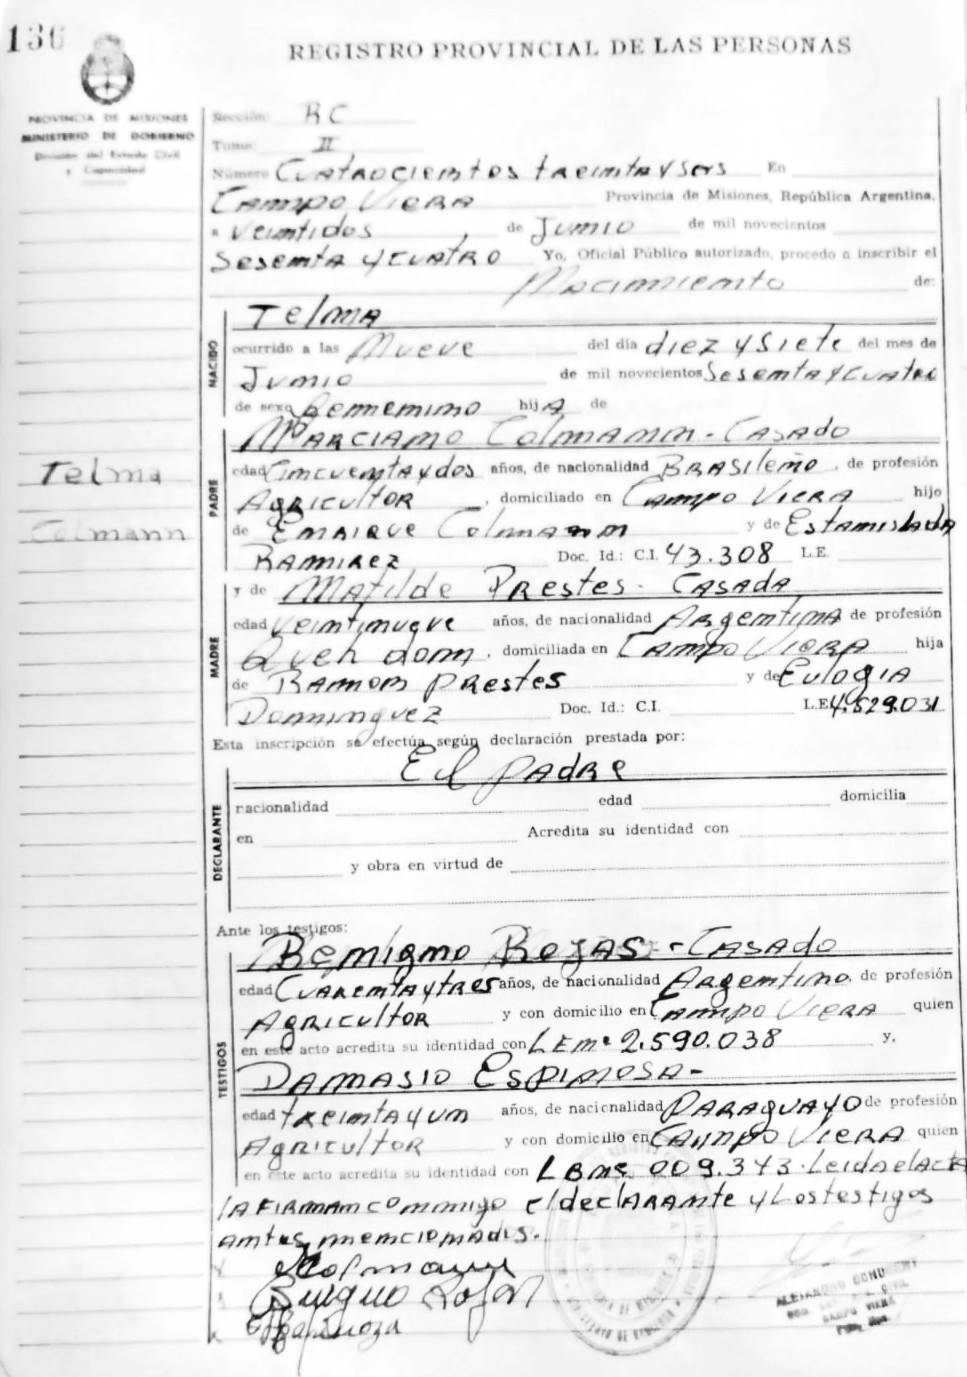 136
REGISTRO PROVINCIAL DE LAS PERSONAS
PROVINCIA DE MISIONES
MINISTERIO DE GOBIERNO
Dirección del Estado Civil
y Capacidad
Sección: RC
Tomo: II
Número Cuatrocientos treinta y seis En
Campo Viera Provincia de Misiones, República Argentina,
a veintidos de Junio de mil novecientos
Sesenta y cuatro Yo, Oficial Público autorizado, procedo a inscribir el
Nacimiento de:
NACIDO
Telma
ocurrido a las Nueve del día diez y Siete del mes de
Junio de mil novecientos Sesenta y cuatro
de sexo femenino hija de
PADRE
Marciano Colmann - Casado
edad Cincuenta y dos años, de nacionalidad Brasileño, de profesión
Agricultor, domiciliado en Campo Viera hijo
de Enrique Colmann y de Estanislada
Ramirez Doc. Id.: C.I. 43.308 L.E.
Telma
Colmann
MADRE
y de Matilde Prestes - Casada
edad veintinueve años, de nacionalidad Argentina de profesión
Queh dom, domiciliada en Campo Viera hija
de Ramon Prestes y de Eulogia
Dominguez Doc. Id.: C.I. L.E. 4.529.031
Esta inscripción se efectúa según declaración prestada por:
DECLARANTE
El padre
nacionalidad edad domicilia
en Acredita su identidad con
y obra en virtud de
Ante los testigos:
TESTIGOS
Benigno Rojas - Casado
edad Cuarenta y tres años, de nacionalidad Argentino, de profesión
Agricultor y con domicilio en Campo Viera quien
en este acto acredita su identidad con L E nº 2.590.038 y,
Damasio Espinosa -
edad treinta y un años, de nacionalidad Paraguayo de profesión
Agricultor y con domicilio en Campo Viera quien
en este acto acredita su identidad con 009.343. Leida el acta
la firman conmigo el declarante y Los testigos
antes mencionados.
Colmann
Benigno Rojas
Espinoza
ALEJANDRO
CAMPO VIERA